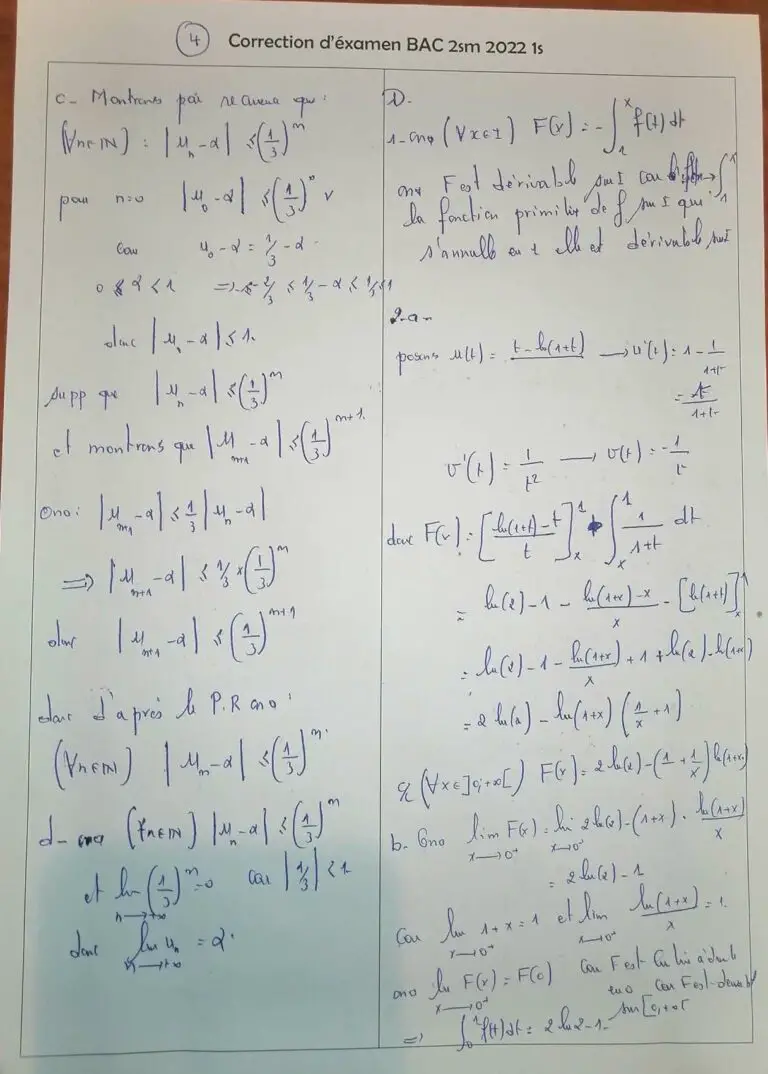 4 Correction d'éxamen BAC 2sm 2022 1s
c_ Montrons par recurence que :
(∀n∈IN) : |u_n - α| ≤ (1/3)^n
pour n=0 |u_0 - α| ≤ (1/3)^0 ✓
car u_0 - α = 1/3 - α
0 ≤ α < 1 ⟹ -2/3 ≤ 1/3 - α ≤ 1/3 ≤ 1
donc |u_0 - α| ≤ 1.
supp que |u_n - α| ≤ (1/3)^n
et montrons que |u_{n+1} - α| ≤ (1/3)^{n+1}.
On a : |u_{n+1} - α| ≤ 1/3 |u_n - α|
⟹ |u_{n+1} - α| ≤ 1/3 × (1/3)^n
donc |u_{n+1} - α| ≤ (1/3)^{n+1}
donc d'après le P.R on a :
(∀n∈IN) |u_n - α| ≤ (1/3)^n.
d- ona (∀n∈IN) |u_n - α| ≤ (1/3)^n
et lim_{n→+∞} (1/3)^n = 0 car |1/3| < 1.
donc lim_{n→+∞} u_n = α.
1- ona (∀x∈I) F(x) = -∫_1^x f(t) dt
ona F est dérivable sur I car
la fonction primitive de f sur I qui
s'annulle en 1 elle est dérivable sur I
2-a-
posons u(t) = t - ln(1+t) ⟶ u'(t) = 1 - 1/(1+t)
= t/(1+t)
v'(t) = 1/t² ⟶ v(t) = -1/t
donc F(x) = [(ln(1+t) - t)/t]_x^1 + ∫_x^1 1/(1+t) dt
= ln(2) - 1 - (ln(1+x) - x)/x - [ln(1+t)]_x^1
= ln(2) - 1 - ln(1+x)/x + 1 + ln(2) - ln(1+x)
= 2 ln(2) - ln(1+x) (1/x + 1)
(∀x∈]0,+∞[) F(x) = 2 ln(2) - (1 + 1/x) ln(1+x)
b. Ona lim_{x→0⁺} F(x) = lim_{x→0⁺} 2 ln(2) - (1+x) · ln(1+x)/x
= 2 ln(2) - 1
Car lim_{x→0⁺} 1+x = 1 et lim_{x→0⁺} ln(1+x)/x = 1.
ona lim_{x→0⁺} F(x) = F(0) car F est continue à droite
en 0 car F est dérivable
sur [0,+∞[
⟹ ∫_0^1 f(t) dt = 2 ln 2 - 1.